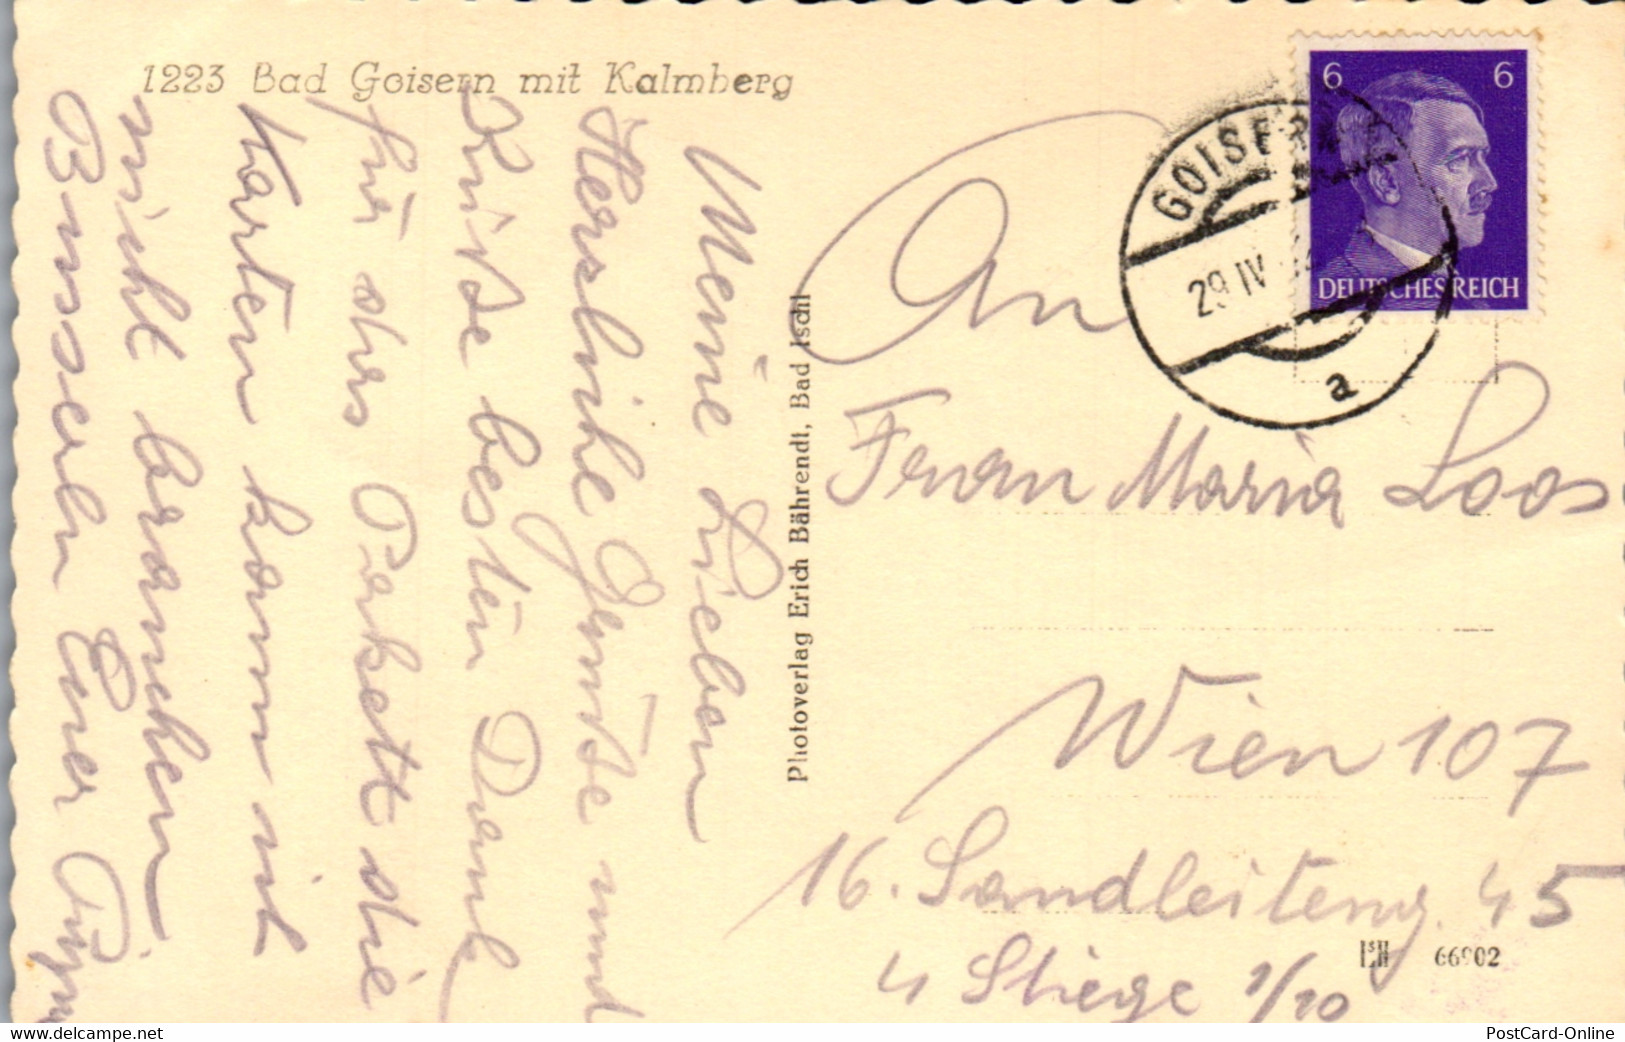 1223 Bad Goisern mit Kalmberg
Meine Lieben
Herzliche Grüße und
Küße besten Dank
für das Packett die
Karten kann ich
nicht brauchen
Busserln Euer
Photoverlag Erich Bährendt, Bad Ischl
6 6
DEUTSCHES REICH
GOISERN
29 IV
a
An
Frau Maria Loos
Wien 107
16. Sandleiteng. 45
4 Stiege 1/10
66902
PostCard-Online
www.delcampe.net